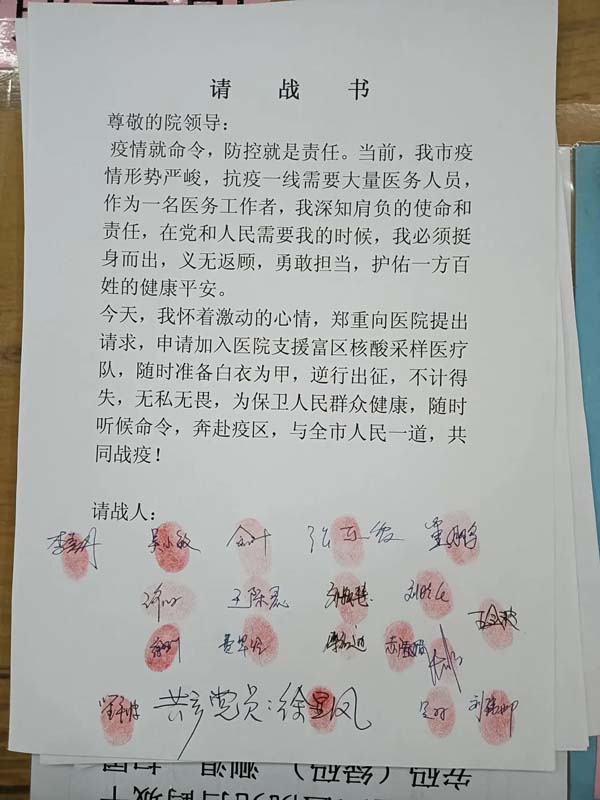 请 战 书
尊敬的院领导：
疫情就命令，防控就是责任。当前，我市疫
情形势严峻，抗疫一线需要大量医务人员，
作为一名医务工作者，我深知肩负的使命和
责任，在党和人民需要我的时候，我必须挺
身而出，义无返顾，勇敢担当，护佑一方百
姓的健康平安。
今天，我怀着激动的心情，郑重向医院提出
请求，申请加入医院支援富区核酸采样医疗
队，随时准备白衣为甲，逆行出征，不计得
失，无私无畏，为保卫人民群众健康，随时
听候命令，奔赴疫区，与全市人民一道，共
同战疫！
请战人：
吴小敏
王陈磊
共产党员：徐显凤